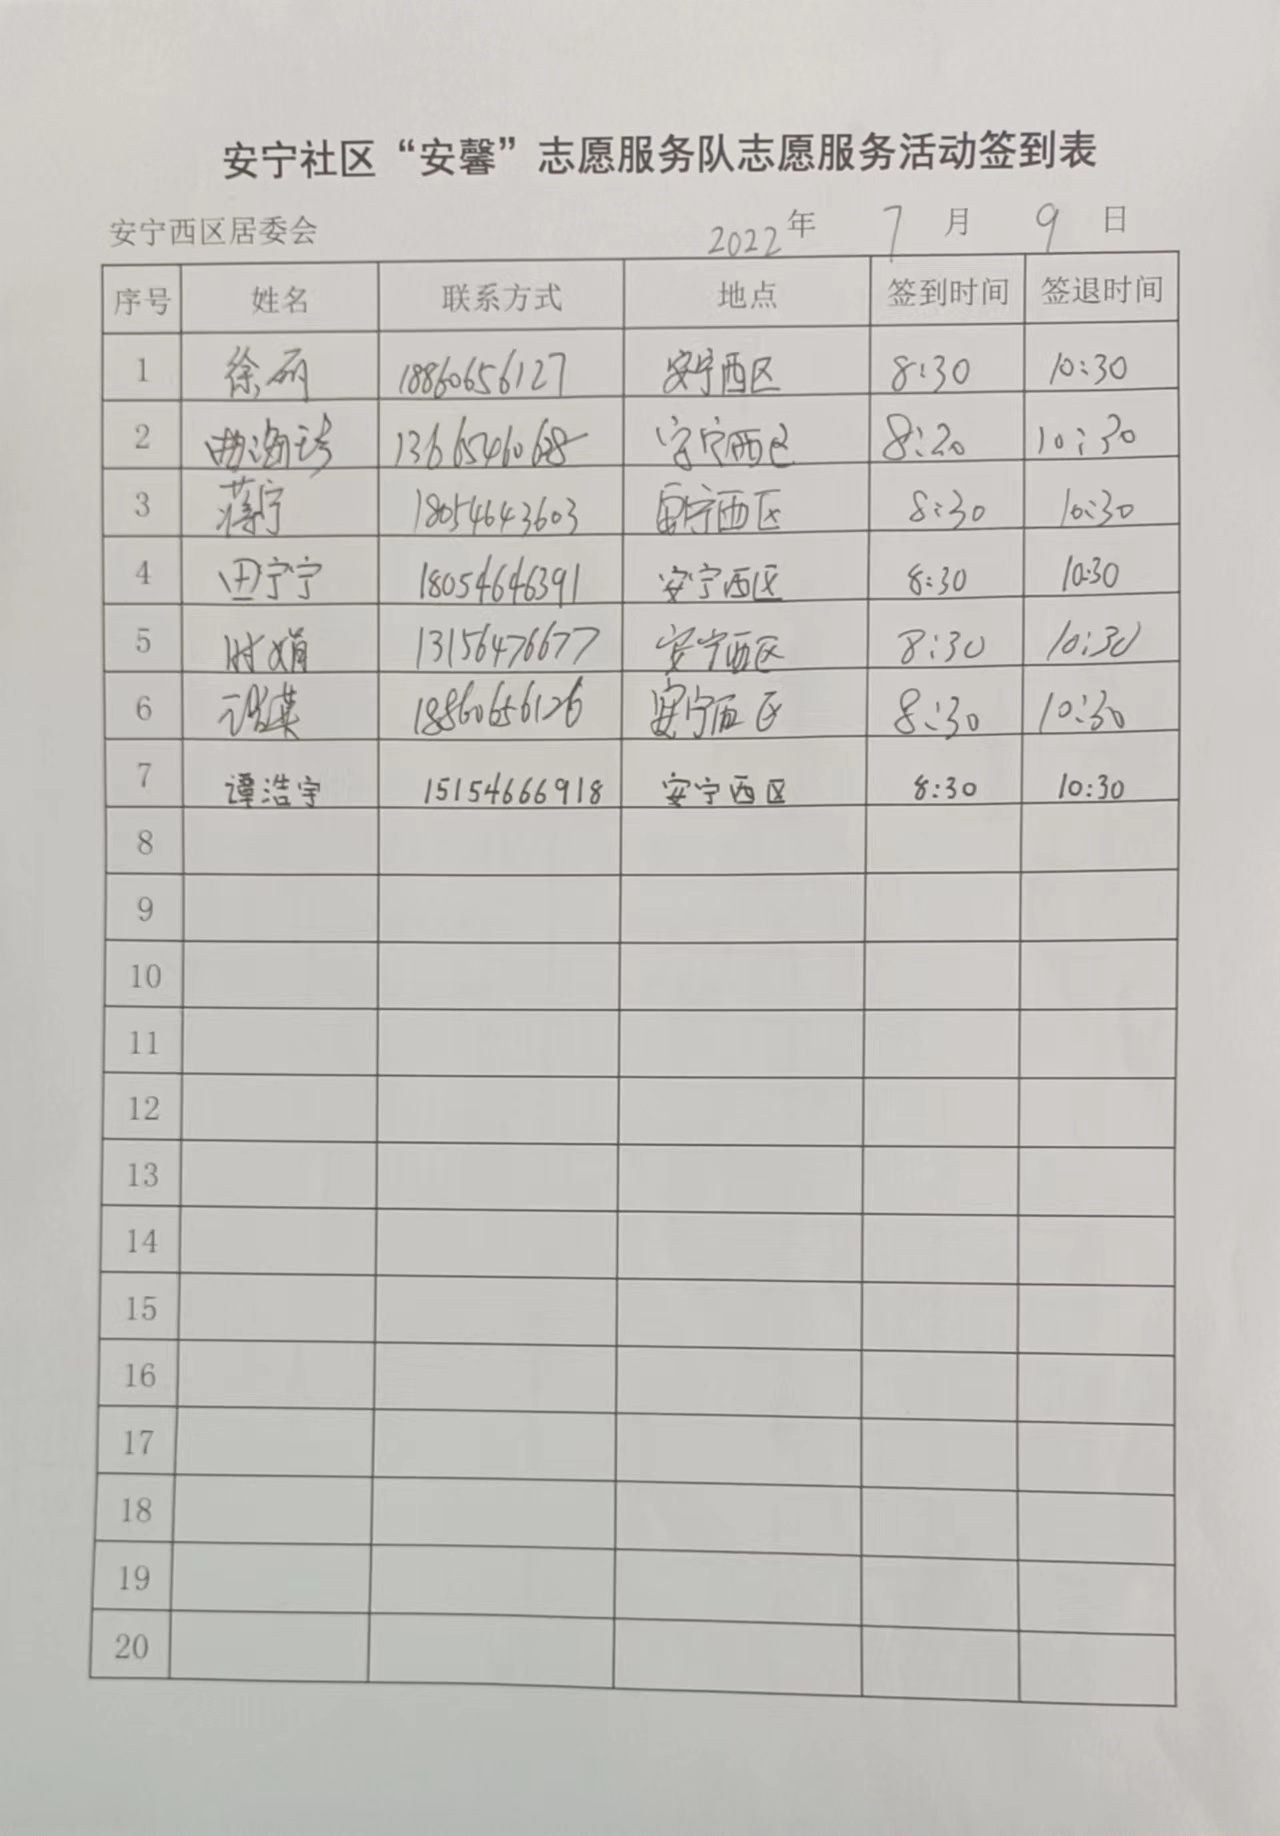 安宁社区“安馨”志愿服务队志愿服务活动签到表
安宁西区居委会 2022年 7月 9日
序号 姓名 联系方式 地点 签到时间 签退时间
1 徐丽 18860656127 安宁西区 8:30 10:30
2 13665460628 安宁西区 8:20 10:30
3 蒋宁 18054643603 安宁西区 8:30 10:30
4 田宁宁 18054646391 安宁西区 8:30 10:30
5 时娟 13156476677 安宁西区 8:30 10:30
6 18860656126 安宁西区 8:30 10:30
7 谭浩宇 15154666918 安宁西区 8:30 10:30
8
9
10
11
12
13
14
15
16
17
18
19
20